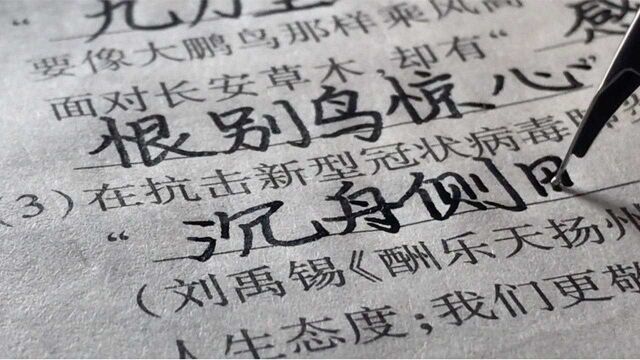 “ 九万里
要像大鹏鸟那样乘风高
面对长安草木 却有“ 感
恨别鸟惊心”
(3)在抗击新型冠状病毒肺
“ 沉舟侧田
(刘禹锡《酬乐天扬州
人生态度;我们更敬